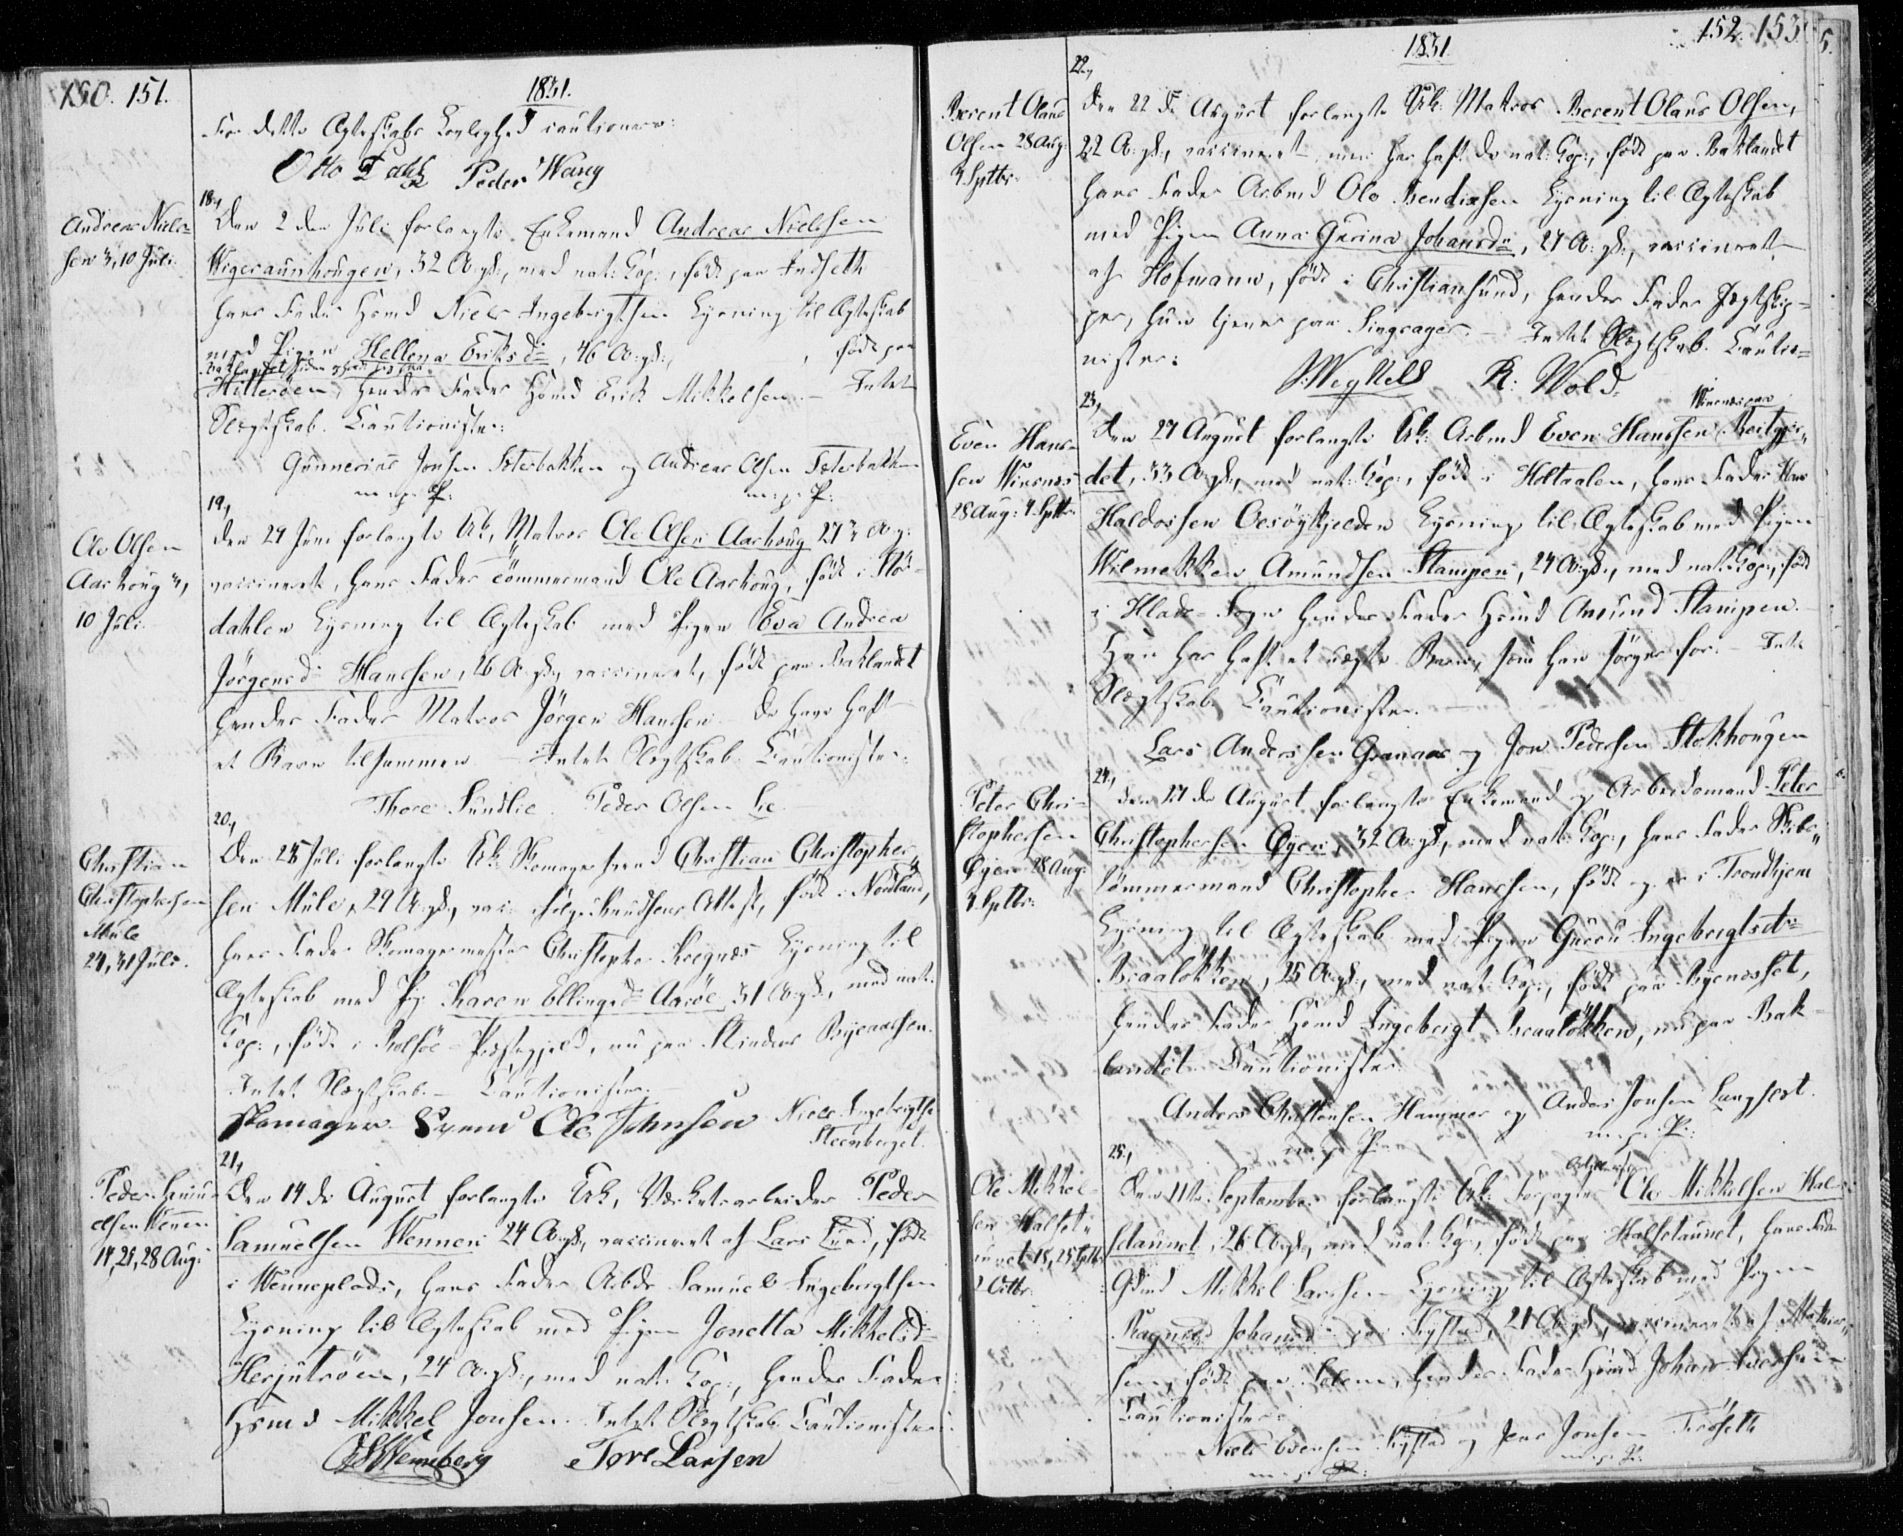 150. 151.
1831.
For dette Ægteskabs Lovlighed cautionere:
Otto Peder Wang
Andreas Niel-
sen 3, 10 Juli
18,
Den 2 den Juli forlangte Enkemand Andreas Nielsen
Wigeraunhougen, 32 A: gl:, med nat: Kop:, født paa Indseth
hans Fader Hsmd Niels Ingebrigtsen Lysning til Ægteskab
med Pigen Hellena Eriksd:, 46 A: gl:, født paa
Hitterøen, hendes Fader Hsmd Erik Mikkelsen. – Intet
Slægtskab. Cautionister:
Gunnerius Jonsen Sæterbakken og Andreas Olsen Sæterbakken
m. p. P: m: p: P:
Ole Olsen
Aarhoug 3,
10 Juli
19,
Den 29 Juni forlangte Uk, Matros Ole Olsen Aarhoug 27 A: g:
vaccineret, hans Fader Tömmermand Ole Aarhoug, født i Stör-
dahlen Lysning til Ægteskab med Pigen Eva Andrea
Jørgensd: Hansen, 26 A: gl:, vaccineret, født paa Baklandet
hendes Fader Matros Jörgen Hansen – De have haft
et Barn tilsammen – Intet Slægtskab. Cautionister:
Thore Sundlie Peder Olsen Lie
Christian
Christophersen
Mule
24, 31 Juli.
20,
Den 23 Juli forlangte Uk: Skomagersvend Christian Christopher-
sen Mule, 29 A: gl:, vac: ifølge Knudsens Attest, født i Nordland,
hans Fader Skomagermester Christopher Lysning til
Ægteskab med Pig: Karen Ellingsd: Aaröe, 31 A: gl:, med nat:
Kop:, født i Bolsöe Præstegjeld, nu paa Strinden Byeaasen.
Intet Slægtskab – Cautionister:
Skomager Svend Ole Johnsen Niels Ingebrigtsen
Steenberget.
Peder Samu-
elsen Wennen
14, 21, 28 Aug:
21,
Den 14 de August forlangte Uk, Værksarbeider Peder
Samuelsen Wennen 24 A: gl:, vaccineret af Lars Lund, født
i Wenneplads, hans Fader Arbdr Samuel Ingebrigtsen
Lysning til Ægteskab med Pigen Jonetta Mikkelsd:
Herjutröen, 24 A: gl:, med nat: Kop:, hendes Fader
Hsmd Mikkel Jonsen. Intet Slægtskab. Cautionister:
Wenneberg Tore Larsen
152. 153
1831
Berent Olaus
Olsen 28 Aug:
4 Septbr:
22,
Den 22 de August forlangte Uk: Matros Berent Olaus Olsen,
22 A: gl:, vaccineret men har haft de nat: Kop:, født paa Baklandet
hans Fader Arbmd Ole Bendixsen Lysning til Ægteskab
med Pigen Anna Gurina Johansd:, 27 A: gl:, vaccineret
af Hofmann, født i Christiansund, hendes Fader Jægtskip-
per, hun tjener paa Singsager. – Intet Slægtskab. Cautio-
nister:
R: Wold.
Even Hans-
sen Winsnes
28 Aug: 4. Septbr.
23,
Den 27 August forlangte Uk: Arbmd Even Hanssen
det, 33 A: gl:, med nat: Kop:, født i Holtaalen, hans Fader Hans
Haldorsen Lysning til Ægteskab med Pigen
Wilmekken Amundsen Stampen, 24 A: gl:, med nat: Kop:, født
i Hlade Sogn hendes Fader Hsmd Amund Stampen.
Hun har haft et uægte Barn, som han sørger for. – Intet
Slægtskab Cautionister. –
Lars Anderssen Granaas og Jon Pedersen Stokhougen
Peter Chri-
stophersen
Øyen 28 Aug:
4. Septbr:
24,
Den 27 de August forlangte Enkemand og Arbeidsmand Peter
Christophersen Øyen, 32 A: gl:, med nat: Kop:, hans Fader Skibs-
tömmermand Christopher Hansen, født i Trondhjem
Lysning til Ægteskab med Pigen Guru Ingebrigtsd:
Braalökken, 25 A: gl:, med nat: Kop:, født paa Byenesset,
hendes Fader Hsmd Ingebrigt Braalökken, nu paa Bak-
landet. Cautionister
Anders Christensen Hammer og Anders Jonsen Langsest.
m: p: P: m: p: P:
Ole Mikkel-
sen Halset-
aunet 18, 25 Septbr
2 Octbr:
25,
Den 11te September forlangte Uk: Ole Mikkelsen Hal-
setaunet, 26 A: gl:, med nat: Kop:, født paa Halsetaunet, hans Fader
Gdmd Mikkel Larsen Lysning til Ægteskab med Pigen
Ragnild Johansd: Kystad, 21 A: gl:, vaccineret af
sen, født paa hendes Fader Hsmd Johan Iversen
Cautionister:
Niels Evensen Kystad og Jens Jonsen
m: p: P: m: p: P: